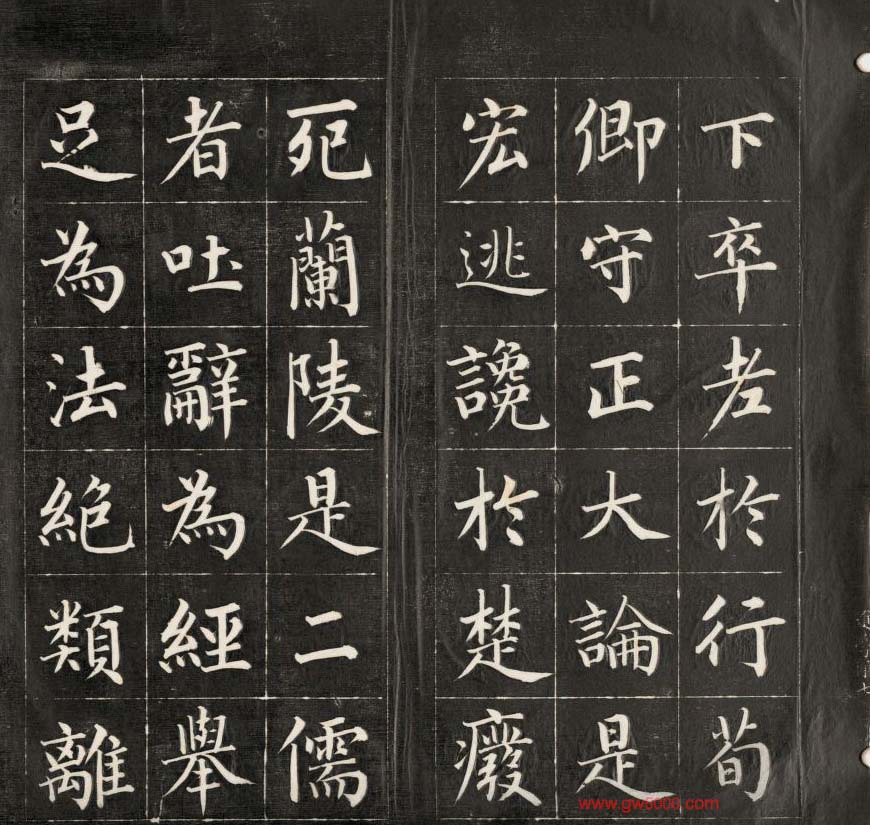 下卒老於行荀
卿守正大論是
宏逃讒於楚癈
死蘭陵是二儒
者吐辭為經舉
足為法絕類離
www.gw5000.com